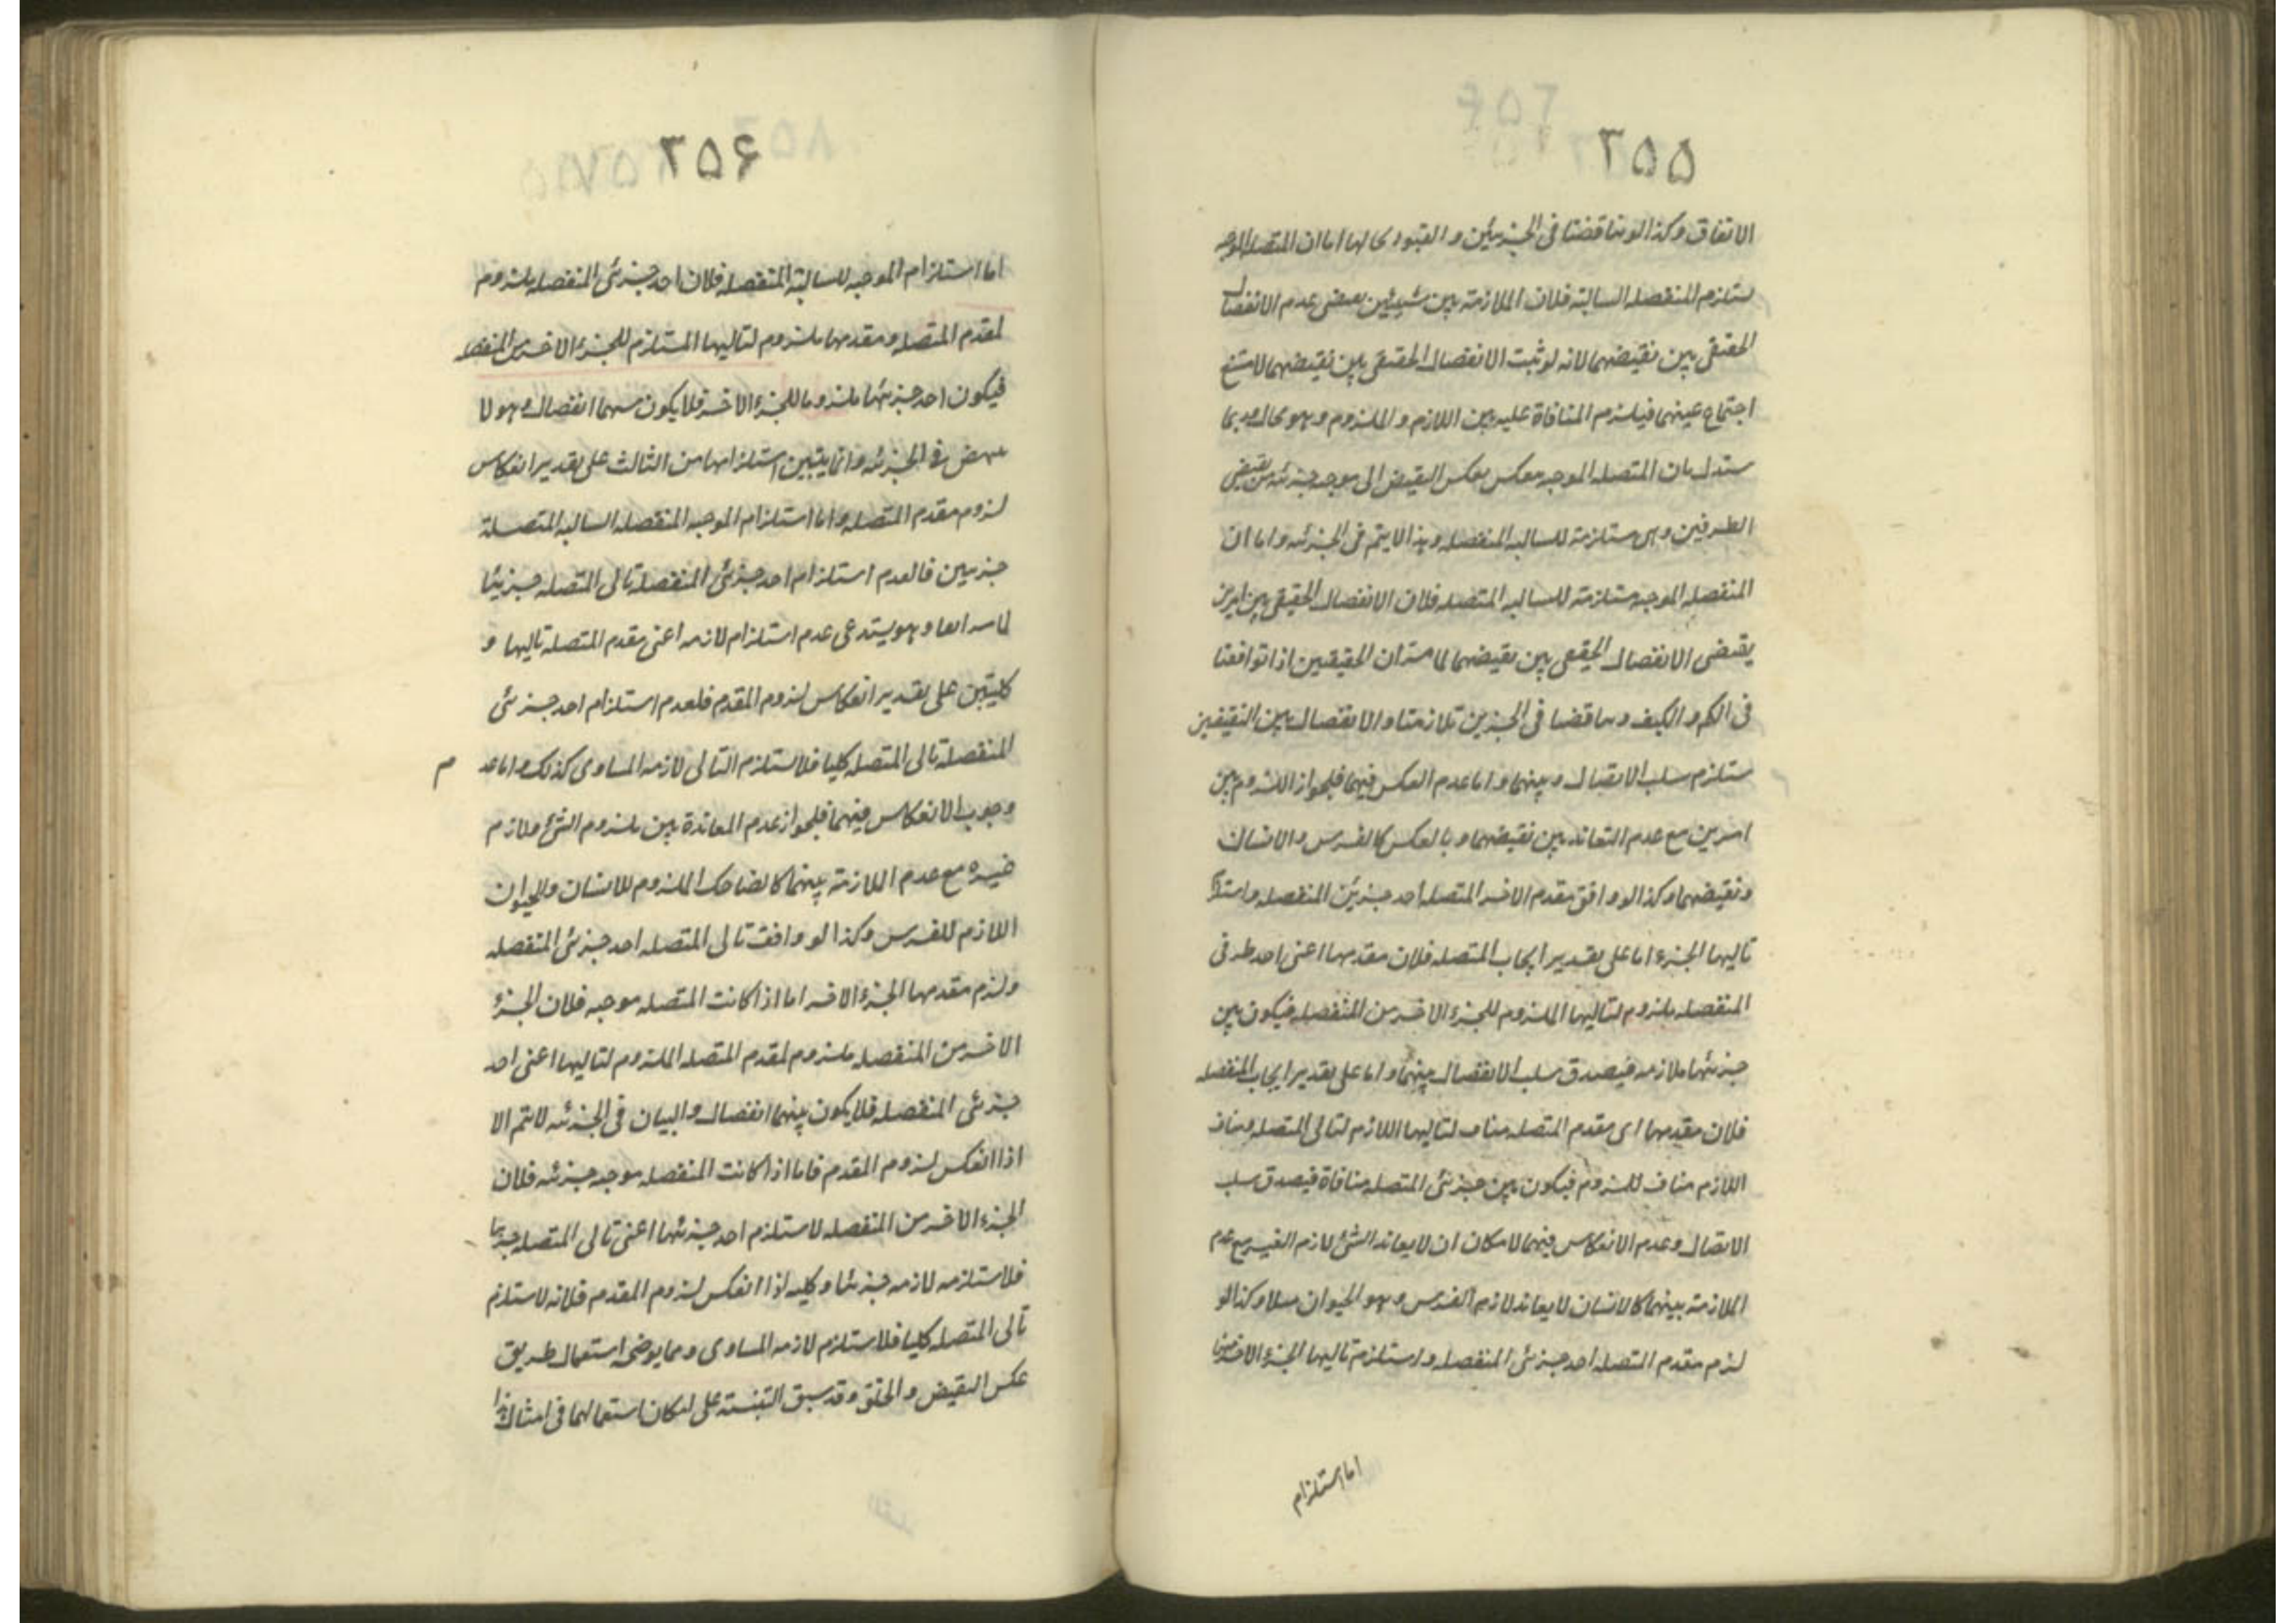 ٢٥٥
الاتفاق وكذا لو تناقضتا في الجزئين والقيود بحالها اما ان المتصله الموجبه
يستلزم المنفصله السالبة فلان الملازمة بين شيئين يقتضي عدم الانفصال
الحقيقي بين نقيضيهما لانه لو ثبت الانفصال الحقيقي بين نقيضيهما لامتنع
اجتماع عينهما فيلزم المنافاة عليه بين اللازم والملزوم وهو محال وربما
يستدل بان المتصله الموجبه تنعكس بعكس النقيض الى موجبه جزئيه من نقيضي
الطرفين وهي مستلزمة للسالبه المنفصله وهذا لا يتم في الجزئيه واما ان
المنفصله الموجبه مستلزمة للسالبه المتصله فلان الانفصال الحقيقي بين امرين
يقتضي الانفصال الحقيقي بين نقيضيهما لما مر ان الحقيقتين اذا توافقتا
في الكم والكيف وتناقضتا في الجزئين تلازمتا والانفصال بين النقيضين
يستلزم سلب الاتصال بينهما واما عدم العكس فيهما فلجواز اللزوم بين
امرين مع عدم التعاند بين نقيضيهما وبالعكس كالفرس والانسان
ونقيضيهما وكذا لو وافق مقدم الاخر المتصله احد جزئين المنفصله واستلزم
تاليها الجزء اما على تقدير ايجاب المتصله فلان مقدمها اعني احد طرفي
المنفصله ملزوم لتاليها الملزوم للجزء الاخر من المنفصله فيكون بين
جزئيها ملازمه فيصدق سلب الانفصال بينهما واما على تقدير ايجاب المنفصله
فلان مقدمها اى مقدم المتصله مناف لتاليها اللازم لتالى المتصله ومناف
اللازم مناف للملزوم فيكون بين جزئى المتصله منافاة فيصدق سلب
الاتصال وعدم الانعكاس فيهما لامكان ان لا يعاند الشئ لازم الغير مع عدم
الملازمة بينهما كالانسان لا يعاند لازم الفرس وهو الحيوان مثلا وكذا لو
لزم مقدم المتصله احد جزئى المنفصله واستلزم تاليها الجزء الاخر منها
اما استلزام
٢٥۶
اما استلزام الموجبه للسالبة المنفصله فلان احد جزئى المنفصله ملزوم
لمقدم المتصله ومقدمها ملزوم لتاليها المستلزم للجزء الاخر من المنفصله
فيكون احد جزئيها ملزوما للجزء الاخر فلا يكون بينهما انفصال وهو لا
ينهض في الجزئيه وانما يتبين استلزامها من الثالث على تقدير انعكاس
لزوم مقدم المتصله واما استلزام الموجبه المنفصله السالبه المتصلة
جزئيين فلعدم استلزام احد جزئى المنفصله تالى المتصله جزئيا
لما مر انفا وهو يستدعي عدم استلزام لازمه اعني مقدم المتصله تاليها و
كليتين على تقدير انعكاس لزوم المقدم فلعدم استلزام احد جزئى
المنفصله تالى المتصله كليا فلا يستلزم التالى لازمه المساوى كذلك واما عدم
وجوب الانعكاس فيهما فلجواز عدم المعاندة بين ملزوم الشئ وملازم
غيره مع عدم الملازمة بينهما كالضاحك الملزوم للانسان والحيوان
اللازم للفرس وكذا لو وافقت تالى المتصله احد جزئى المنفصله
ولزم مقدمها الجزء الاخر اما اذا كانت المتصله موجبه فلان الجزء
الاخر من المنفصله ملزوم لمقدم المتصله الملزوم لتاليها اعني احد
جزئى المنفصله فلا يكون بينهما انفصال والبيان في الجزئيه لا يتم الا
اذا انعكس لزوم المقدم فاما اذا كانت المنفصله موجبه جزئيه فلان
الجزء الاخر من المنفصله لا يستلزم احد جزئيها اعني تالى المتصله جزئيا
فلا يستلزمه لازمه جزئيا وكليه اذا انعكس لزوم المقدم فلانه لا يستلزم
تالى المتصله كليا فلا يستلزم لازمه المساوى ومما يوضحه استعمال طريق
عكس النقيض والخلق وقد سبق التنبيه على امكان استعمالهما في امثال هذا